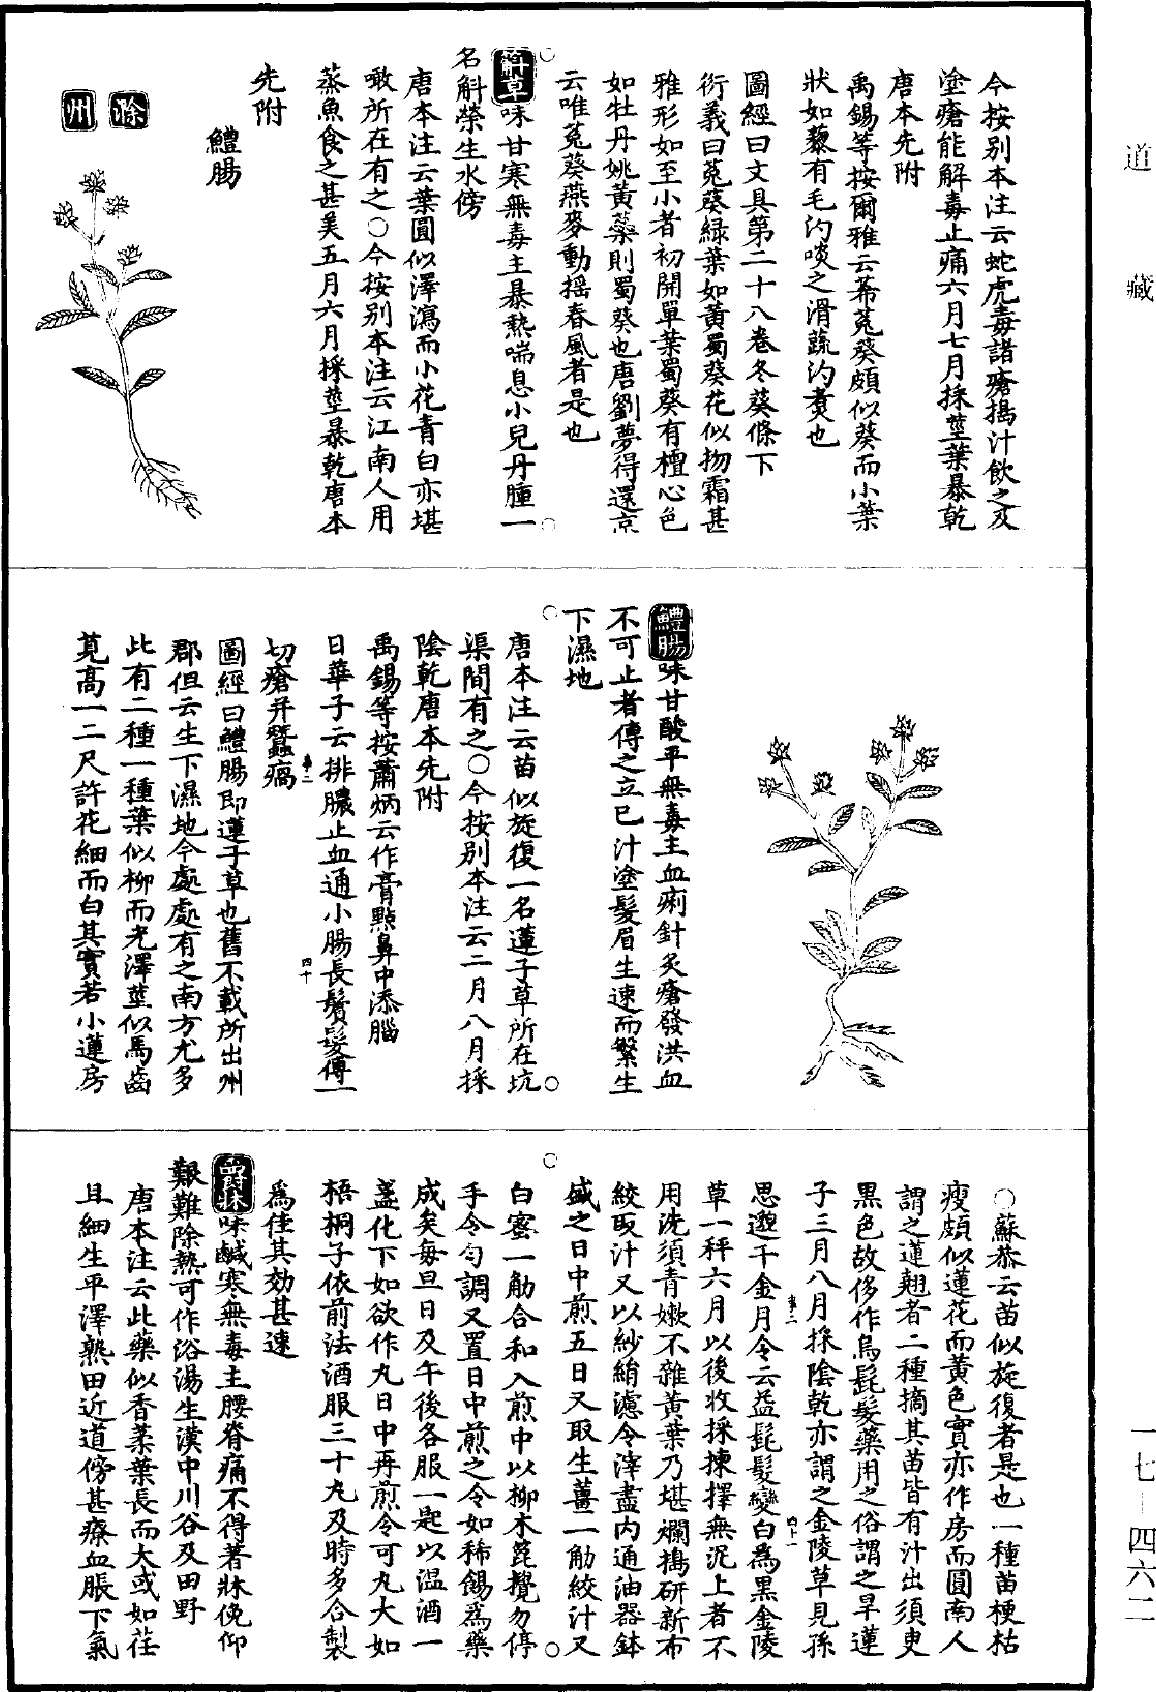 道藏
今按别本注云蛇虎毒諸瘡搗汁飲之及
塗瘡能解毒止痛六月七月採莖葉暴乾
唐本先附
禹錫等按爾雅云莃菟葵頗似葵而小葉
狀如藜有毛汋啖之滑蔬汋煑也
圖經曰文具第二十八卷冬葵條下
衍義曰菟葵緑葉如黃蜀葵花似拗霜甚
雅形如至小者初開單葉蜀葵有檀心色
如牡丹姚黃蘂則蜀葵也唐劉夢得還京
云唯菟葵燕麥動摇春風者是也
○
蔛草味甘寒無毒主暴熱喘息小兒丹腫一
○
名蔛榮生水傍
唐本注云葉圓似澤瀉而小花青白亦堪
噉所在有之○今按别本注云江南人用
蒸魚食之甚美五月六月採莖暴乾唐本
先附
鱧腸
滁
州
鱧腸味甘酸平無毒主血痢針灸瘡發洪血
不可止者傅之立已汁塗髮眉生速而繁生
下濕地
○
唐本注云苗似旋復一名蓮子草所在坑
○
渠間有之○今按别本注云二月八月採
陰乾唐本先附
禹錫等按蕭炳云作膏點鼻中添腦
日華子云排膿止血通小腸長鬚髮傅一
切瘡并蠶瘑
圖經曰鱧腸即蓮子草也舊不載所出州
郡但云生下濕地今處處有之南方尤多
此有二種一種葉似柳而光澤莖似馬齒
莧高一二尺許花細而白其實若小蓮房
○蘇恭云苗似旋復者是也一種苗梗枯
瘦頗似蓮花而黃色實亦作房而圓南人
謂之蓮翹者二種摘其苗皆有汁出須臾
黑色故侈作烏髭髮藥用之俗謂之旱蓮
子三月八月採陰乾亦謂之金陵草見孫
思邈千金月令云益髭髮變白爲黑金陵
草一秤六月以後收採揀擇無泥上者不
用洗須青嫰不雜黃葉乃堪爛搗研新布
絞取汁又以紗絹濾令滓盡内通油器鉢
盛之日中煎五日又取生薑一觔絞汁又
○
白蜜一觔合和入煎中以柳木篦攪勿停
○
手令勻調又置日中煎之令如稀餳爲藥
成矣每旦日及午後各服一匙以温酒一
盞化下如欲作丸日中再煎令可丸大如
梧桐子依前法酒服三十丸及時多合製
爲佳其効甚速
爵牀味鹹寒無毒主腰脊痛不得著牀俛仰
艱難除熱可作浴湯生漢中川谷及田野
唐本注云此藥似香葇葉長而大或如荏
且細生平澤熟田近道傍甚療血脹下氣
一七—四六二